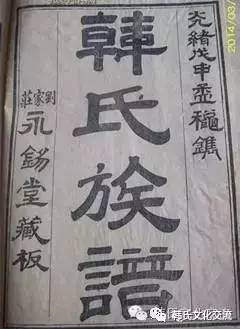 光緒戊申孟穐鐫
韓氏族譜
劉家莊
永錫堂藏板
2014/03/
韩氏文化交流